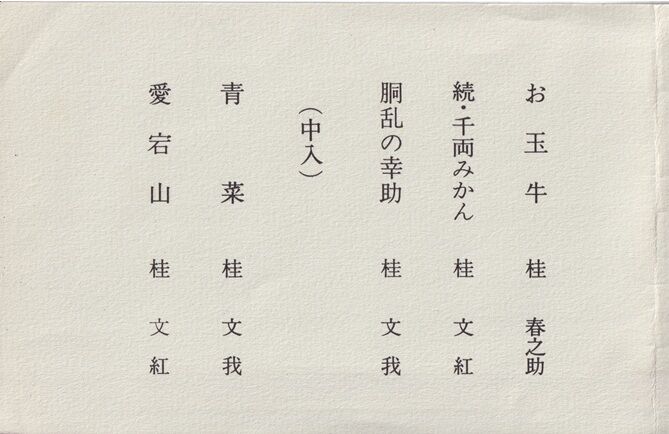 お玉牛 桂 春之助
続・千両みかん 桂 文紅
胴乱の幸助 桂 文我
(中入)
青菜 桂 文我
愛宕山 桂 文紅